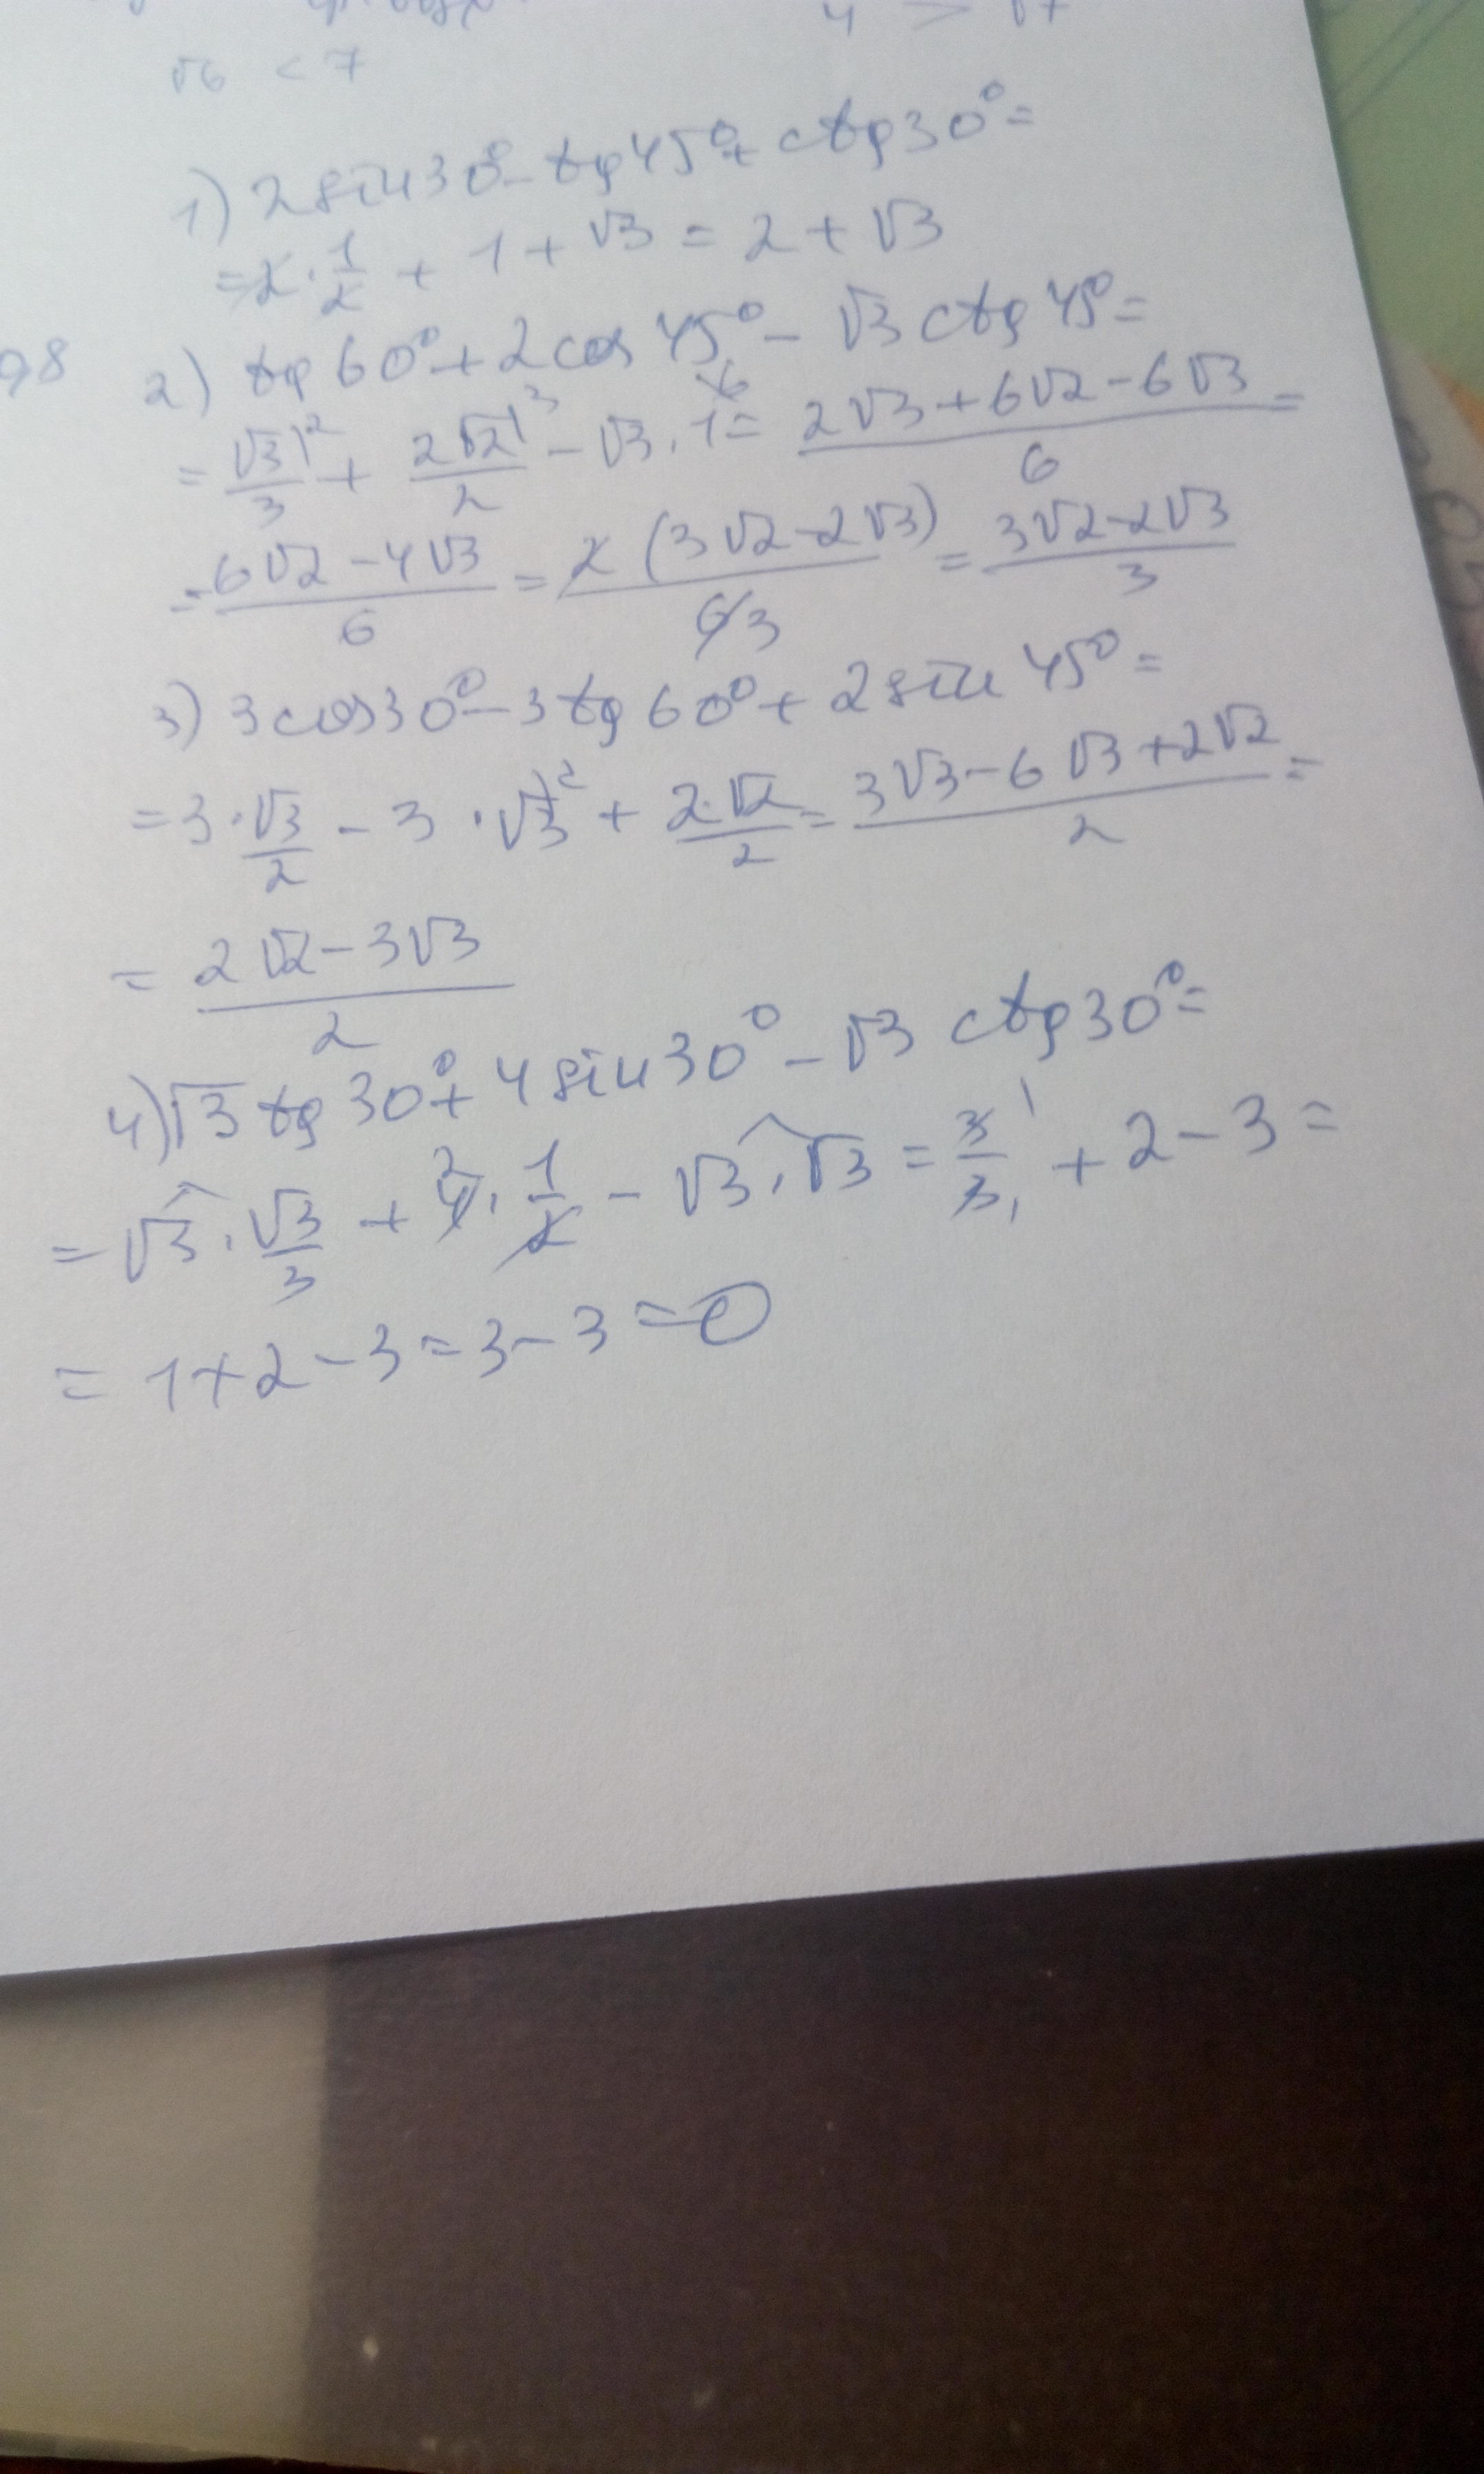 √6 < 7
4 > √7
1) 2sin30°-tg45°+ctg30°=
=2·1/2+1+√3=2+√3
98
2) tg60°+2cos45°-√3ctg45°=
=√3/3|²+2√2/2|³-√3·1\6=(2√3+6√2-6√3)/6=
=(6√2-4√3)/6=2(3√2-2√3)/6 3=(3√2-2√3)/3
3) 3cos30°-3tg60°+2sin45°=
=3·√3/2-3·√3\2+2·√2/2=(3√3-6√3+2√2)/2=
=(2√2-3√3)/2
4) √3tg30°+4sin30°-√3ctg30°=
=√3·√3/3+4 2·1/2-√3·√3=3/3 1 1+2-3=
=1+2-3=3-3=0